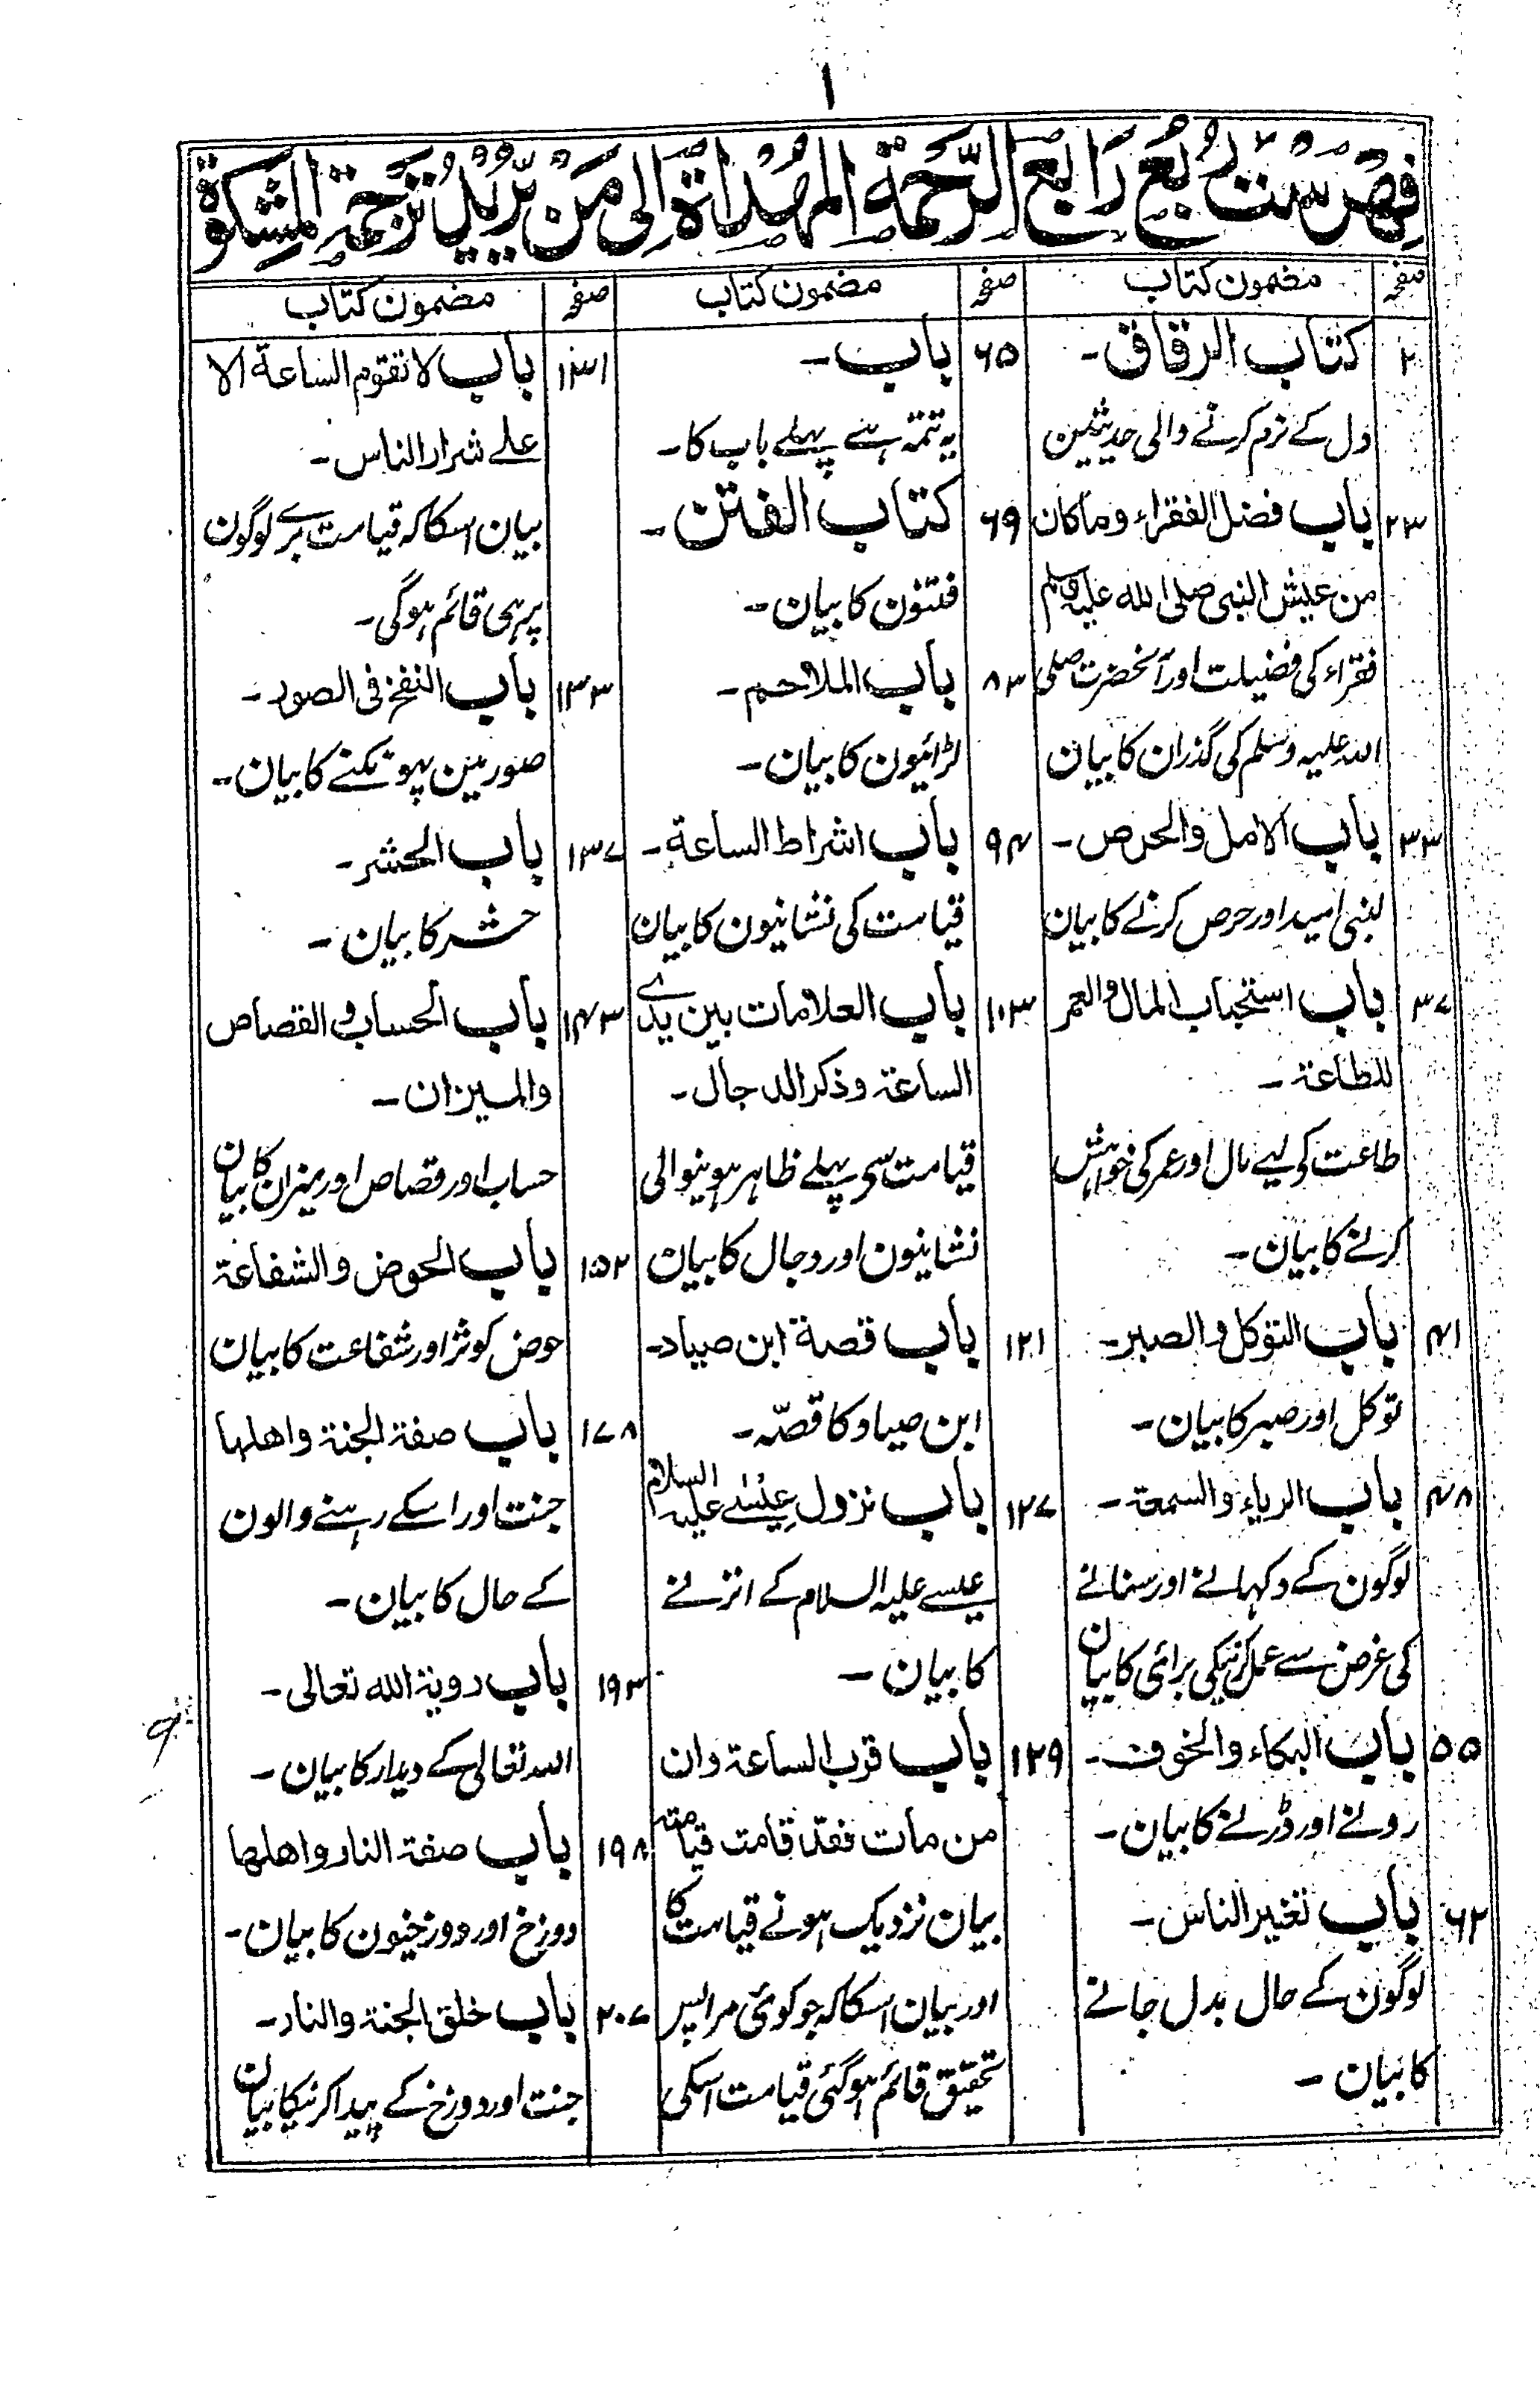 ۱
فهرست ربع رابع الرحمة المهداة الی من یرید ترجمة المشکوة
صفحہ
مضمون کتاب
۲ کتاب الرقاق۔
دل کے نرم کرنے والی حدیثین
۲۳ باب فضل الفقراء وماکان
من عیش النبی صلی الله علیہ وسلم
فقراء کی فضیلت اور آنحضرت صلی
اللہ علیہ وسلم کی گذران کا بیان
۳۳ باب الامل والحرص۔
لنبی امید اور حرص کرنے کا بیان
۳۷ باب استحباب المال والعمر
للطاعۃ۔
طاعت کی لیے مال اور عمر کی خواہش
کرنے کا بیان۔
۴۱ باب التوکل والصبر۔
توکل اور صبر کا بیان۔
۴۸ باب الریاء والسمعۃ۔
لوگون کے دکہانے اور سنانے
کی غرض سے عمل نیکی برائی کا بیان
۵۵ باب البکاء والخوف۔
رونے اور ڈرنے کا بیان۔
۶۲ باب تغیر الناس۔
لوگون کے حال بدل جانے
کا بیان۔
صفحہ
مضمون کتاب
۶۵ باب۔
یہ تتمۃ ہے پہلے باب کا۔
۶۹ کتاب الفتن۔
فتنون کا بیان۔
۸۳ باب الملاحم۔
لڑائیون کا بیان۔
۹۴ باب اشراط الساعۃ۔
قیامت کی نشانیون کا بیان
۱۰۳ باب العلامات بین یدے
الساعۃ وذکر الدجال۔
قیامت سے پہلے ظاہر ہونیوالی
نشانیون اور دجال کا بیان
۱۲۱ باب قصۃ ابن صیاد۔
ابن صیاد کا قصّہ۔
۱۲۷ باب نزول عیسٰے علیہ السلام
عیسے علیہ السلام کے اترنے
کا بیان۔
۱۲۹ باب قرب الساعۃ وان
من مات فقد قامت قیامتہ
بیان نزدیک ہونے قیامت کا
اور بیان اسکا کہ جو کوئی مرا پس
تحقیق قائم ہوگئی قیامت اسکی
صفحہ
مضمون کتاب
۱۳۱ باب لا تقوم الساعۃ الا
علے شرار الناس۔
بیان اسکا کہ قیامت برے لوگون
پر ہی قائم ہوگی۔
۱۳۳ باب النفخ فی الصور۔
صور مین پہونکنے کا بیان۔
۱۳۷ باب الحشر۔
حشر کا بیان۔
۱۴۳ باب الحساب والقصاص
والمیزان۔
حساب اور قصاص اور میزان کا بیان
۱۵۲ باب الحوض والشفاعۃ
حوض کوثر اور شفاعت کا بیان
۱۷۸ باب صفۃ الجنۃ واھلہا
جنت اور اسکے رہنے والون
کے حال کا بیان۔
۱۹۳ باب رویۃ الله تعالی۔
اللہ تعالی کے دیدار کا بیان۔
۱۹۸ باب صفۃ النار واھلہا
دوزخ اور دوزخیون کا بیان۔
۲۰۷ باب خلق الجنۃ والنار۔
جنت اور دوزخ کے پیدا کرنیکا بیان